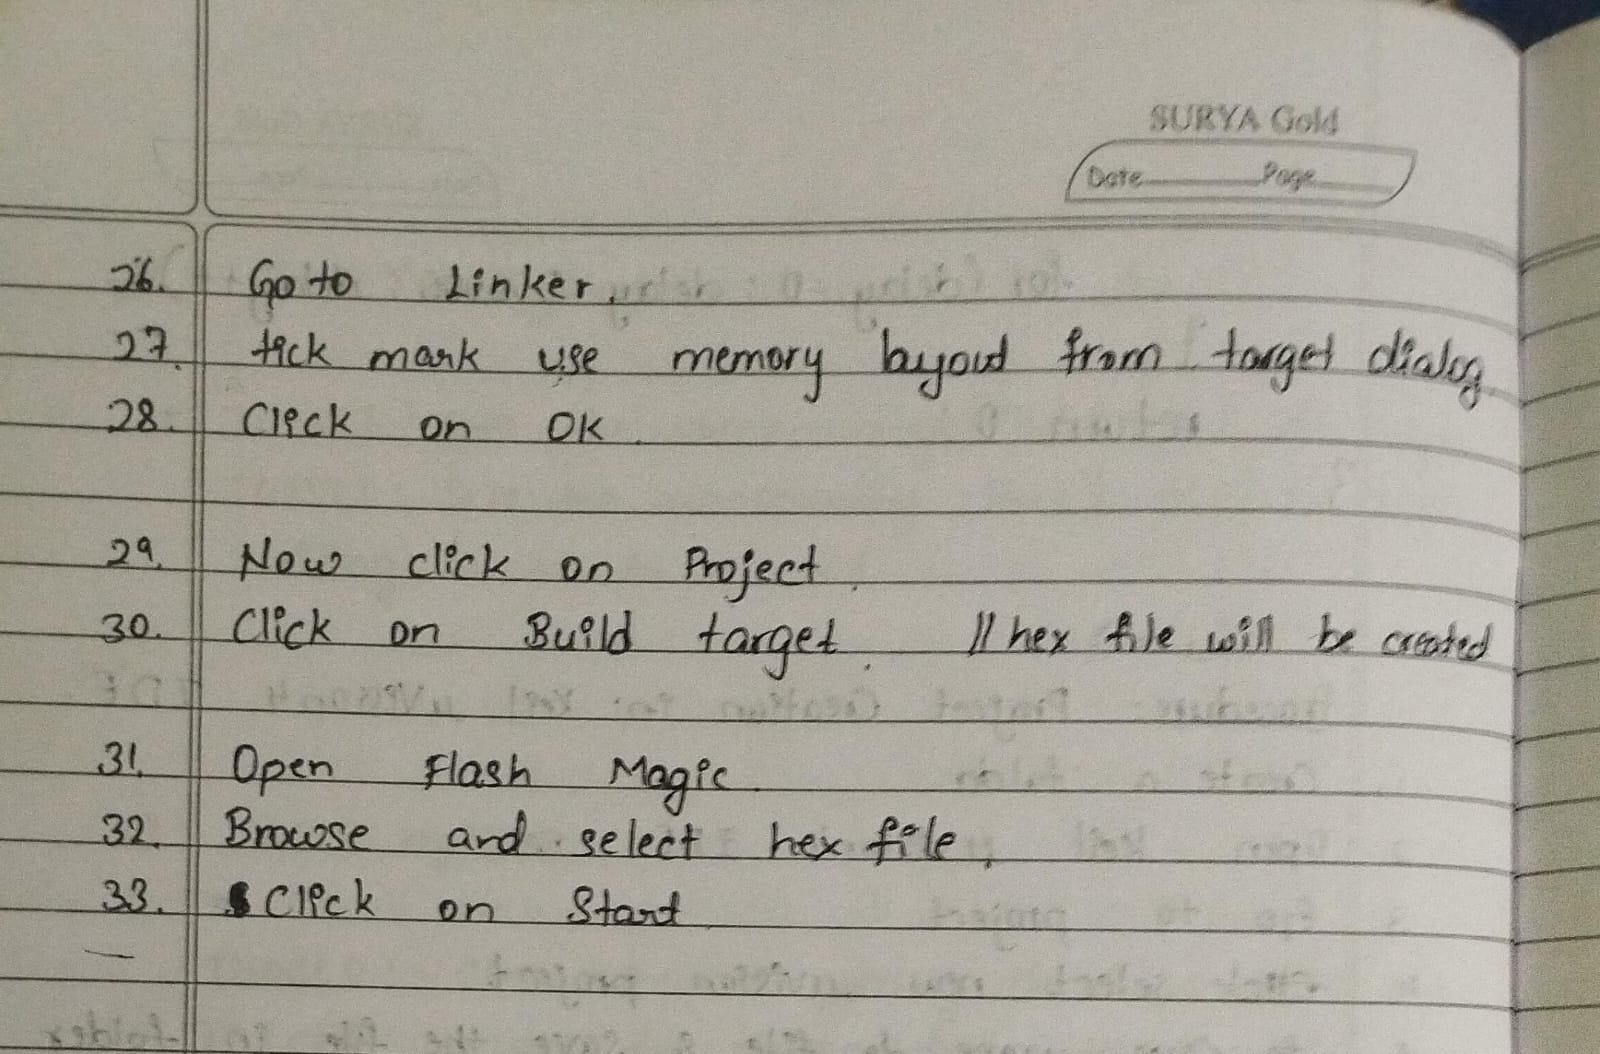 SURYA Gold
Date Page
26. Go to Linker.
27. tick mark use memory layout from target dialog
28. Click on OK.
29. Now click on Project.
30. Click on Build target. // hex file will be created
31. Open Flash Magic.
32. Browse and select hex file.
33. Click on Start.